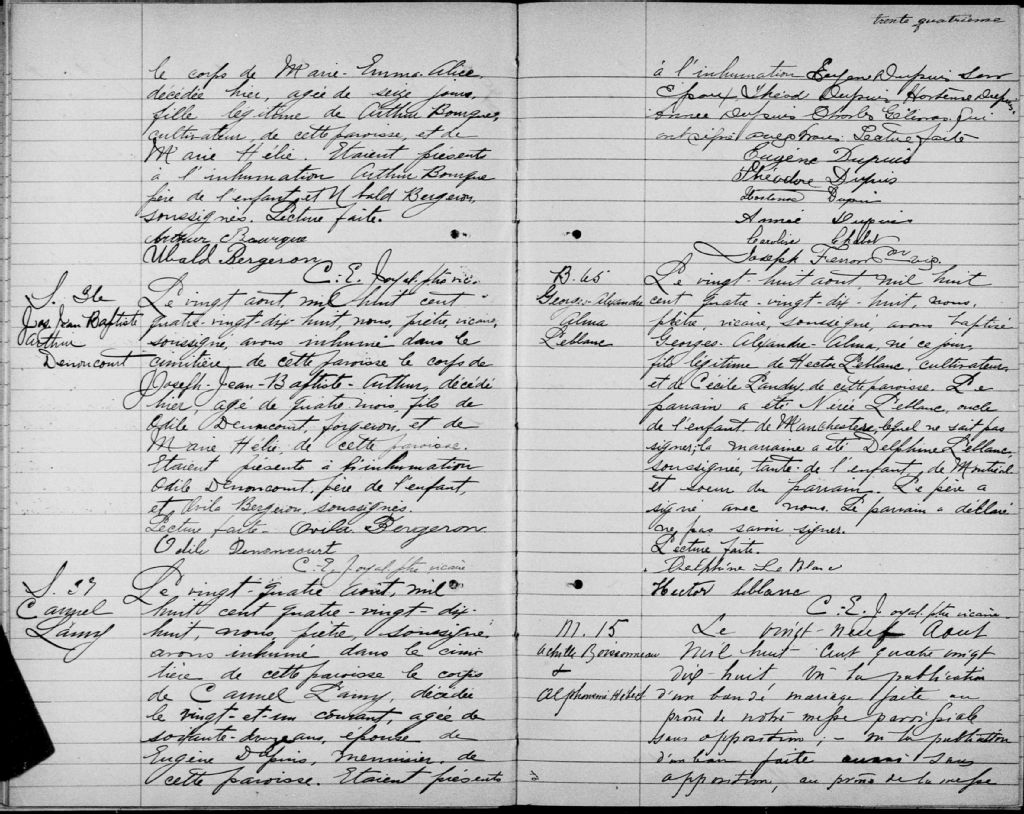 le corps de Marie-Emma-Alice,
décédée hier, agée de seize jours,
fille légitime de Arthur Bourque,
cultivateur, de cette paroisse, et de
Marie Hélie. Etaient présents
à l'inhumation Arthur Bourque
père de l'enfant, et Ubald Bergeron,
soussignés. Lecture faite.
Arthur Bourque
Ubald Bergeron
C. E. Joyal, ptre vic.
S. 36
Jos. Jean Baptiste
Arthur
Denoncourt
Le vingt aout, mil huit cent
quatre-vingt-dix-huit nous, prêtre, vicaire,
soussigné, avons inhumé dans le
cimitière de cette paroisse le corps de
Joseph-Jean-Baptiste-Arthur, décédé
hier, agé de quatre mois, fils de
Odile Denoncourt, forgeron, et de
Marie Hélie, de cette paroisse.
Etaient présents à l'inhumation
Odile Denoncourt, père de l'enfant,
et Ovila Bergeron, soussignés.
Lecture faite. Ovila Bergeron
Odile Denoncourt
C. E. Joyal, ptre vicaire
S. 37
Carmel
Lamy
Le vingt-quatre Aout, mil
huit cent quatre-vingt-dix-
huit, nous, prêtre, soussigné,
avons inhumé dans le cimi
tière de cette paroisse le corps
de Carmel Lamy, décédée
le vingt-et-un courant, agée de
soixante-douze ans, épouse de
Eugène Dupuis, menuisier, de
cette paroisse. Etaient présents
trente quatrième
à l'inhumation Eugène Dupuis son
Epoux Théod Dupuis Hortense Dupuis
Année Dupuis Charles qui
ont signé avec nous. Lecture faite
Eugène Dupuis
Théodore Dupuis
Hortense Dupuis
Année Dupuis
Caroline Chabot
Joseph
B. 65
Georges-Alexandre
Alma
Leblanc
Le vingt-huit aout, mil huit
cent quatre-vingt-dix-huit nous,
prêtre, vicaire, soussigné, avons baptisé
Georges-Alexandre-Alma, né ce jour,
fils légitime de Hector Leblanc, cultivateur,
et de Cécile Landry, de cette paroisse. Le
parrain a été Nérée Leblanc, oncle
de l'enfant, de Manchester, lequel ne sait pas
signer; la marraine a été Delphine Leblanc,
soussignée, tante de l'enfant, de Montréal
et soeur du parrain. Le père a
signé avec nous. Le parrain a déclaré
ne pas savoir signer.
Lecture faite.
Delphine Le Blanc
Hector leblanc
C. E. Joyal, ptre vicaire
M. 15
Achille Boissonneau
+
Alphonsine Hébert
Le vingt-neuf Aout
Mil huit Cent quatre vingt
Dix huit, Vu la publication
d'un ban de mariage faite au
prône de notre messe paroissiale
sans opposition; - Vu la publication
d'un ban faite aussi sans
opposition, au prône de la messe